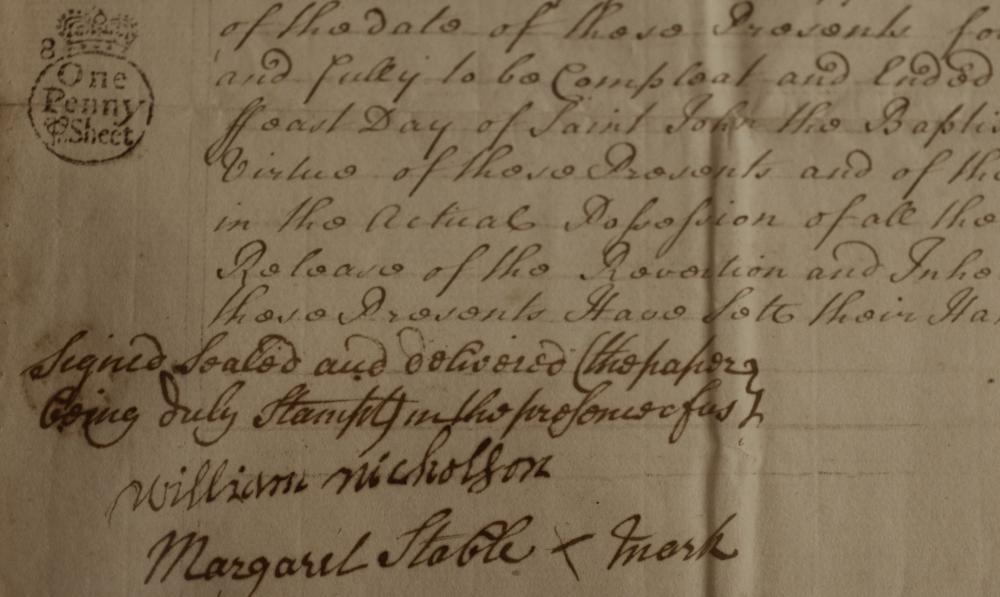 8
One
Penny
P Sheet
of the date of these Presents
and fully to be Compleat and Ended
ffeast Day of Saint John the Baptis
Virtue of these Presents and of the
in the Actual Possession of all the
Release of the Revertion and Inhe
these Presents Have Sett their Ha
Signed Sealed and delivered (the paper
being duly Stampt) in the presence of us
William Nicholson
Margaret Stable × Mark